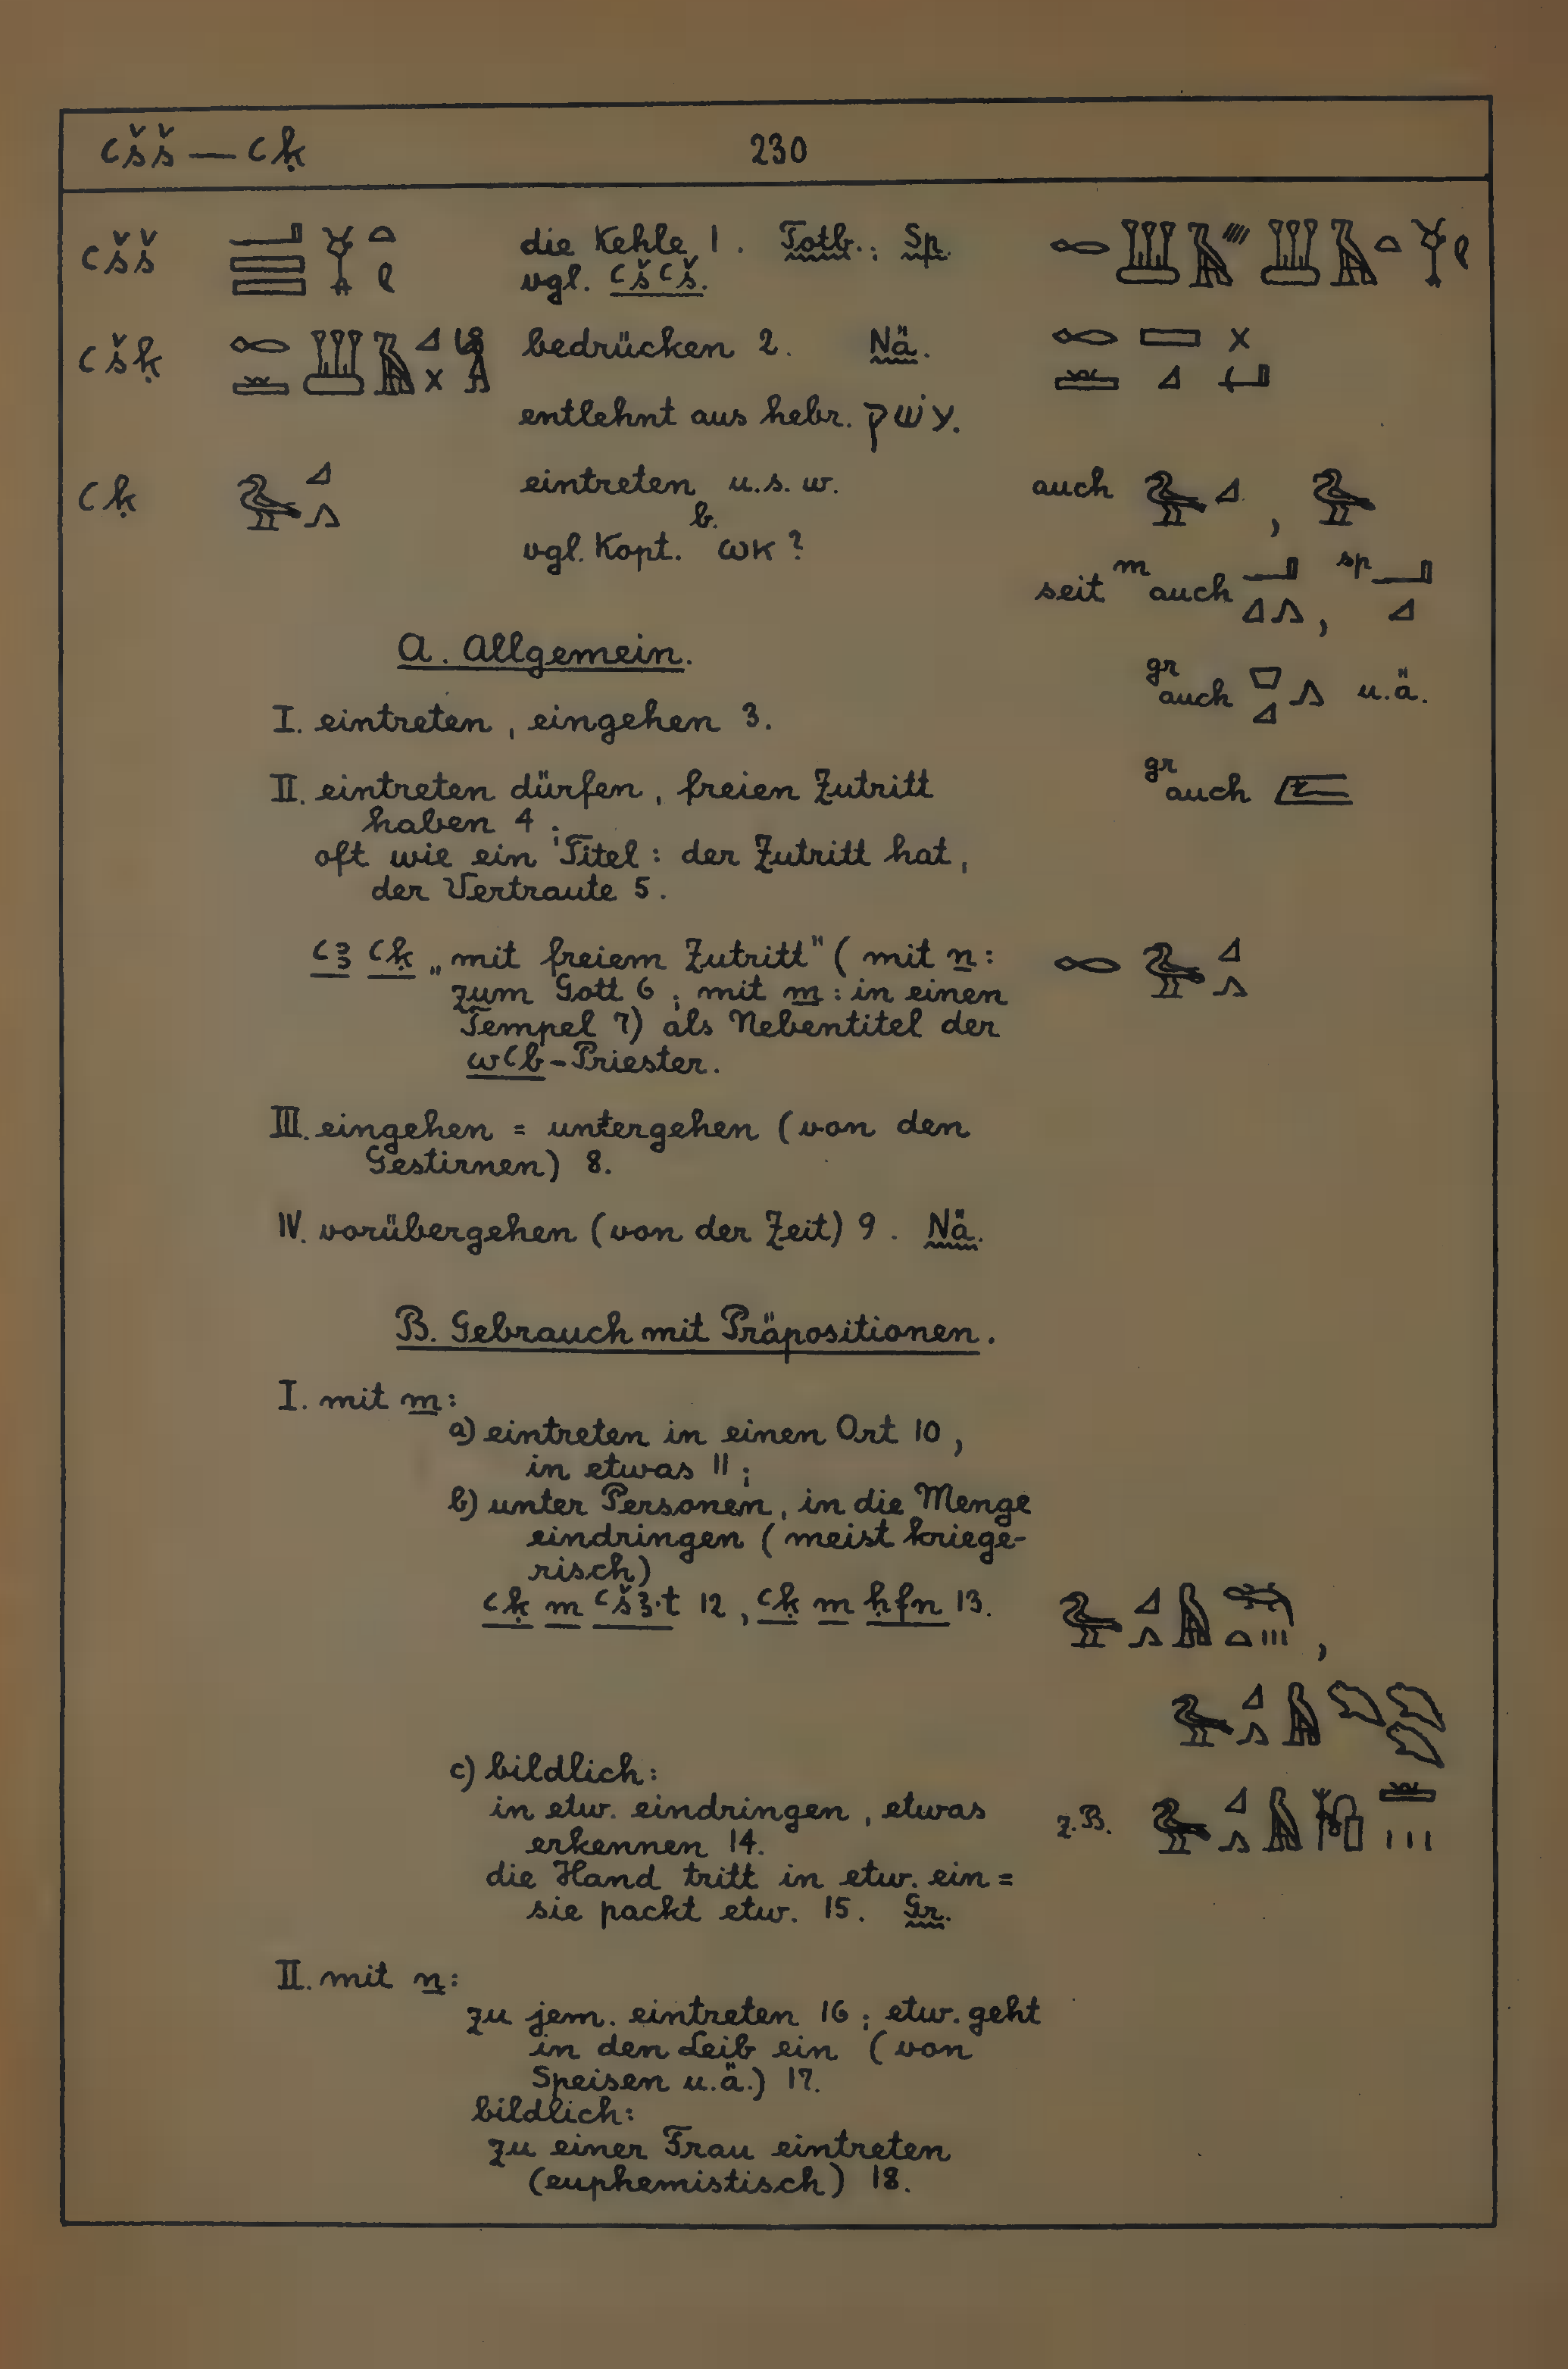 ꜥšš — ꜥḳ 230
ꜥšš die Kehle 1. Totb.; Sp.
vgl. ꜥšꜥš.
ꜥšḳ bedrücken 2. Nä.
entlehnt aus hebr. עשׁק.
ꜥḳ eintreten u.s.w. auch ,
vgl. Kopt. b. ⲱⲕ ?
seit m auch , sp
gr auch u.ä.
gr auch
A. Allgemein.
I. eintreten, eingehen 3.
II. eintreten dürfen, freien Zutritt
haben 4;
oft wie ein Titel: der Zutritt hat,
der Vertraute 5.
ꜥꜣ ꜥḳ „mit freiem Zutritt" (mit n:
zum Gott 6; mit m: in einen
Tempel 7) als Nebentitel der
wꜥb-Priester.
III. eingehen = untergehen (von den
Gestirnen) 8.
IV. vorübergehen (von der Zeit) 9. Nä.
B. Gebrauch mit Präpositionen.
I. mit m:
a) eintreten in einen Ort 10,
in etwas 11;
b) unter Personen, in die Menge
eindringen (meist kriege-
risch)
ꜥḳ m ꜥšꜣ·t 12, ꜥḳ m ḥfn 13.
c) bildlich:
in etw. eindringen, etwas z.B.
erkennen 14.
die Hand tritt in etw. ein =
sie packt etw. 15. Gr.
II. mit n:
zu jem. eintreten 16; etw. geht
in den Leib ein (von
Speisen u.ä.) 17.
bildlich:
zu einer Frau eintreten
(euphemistisch) 18.